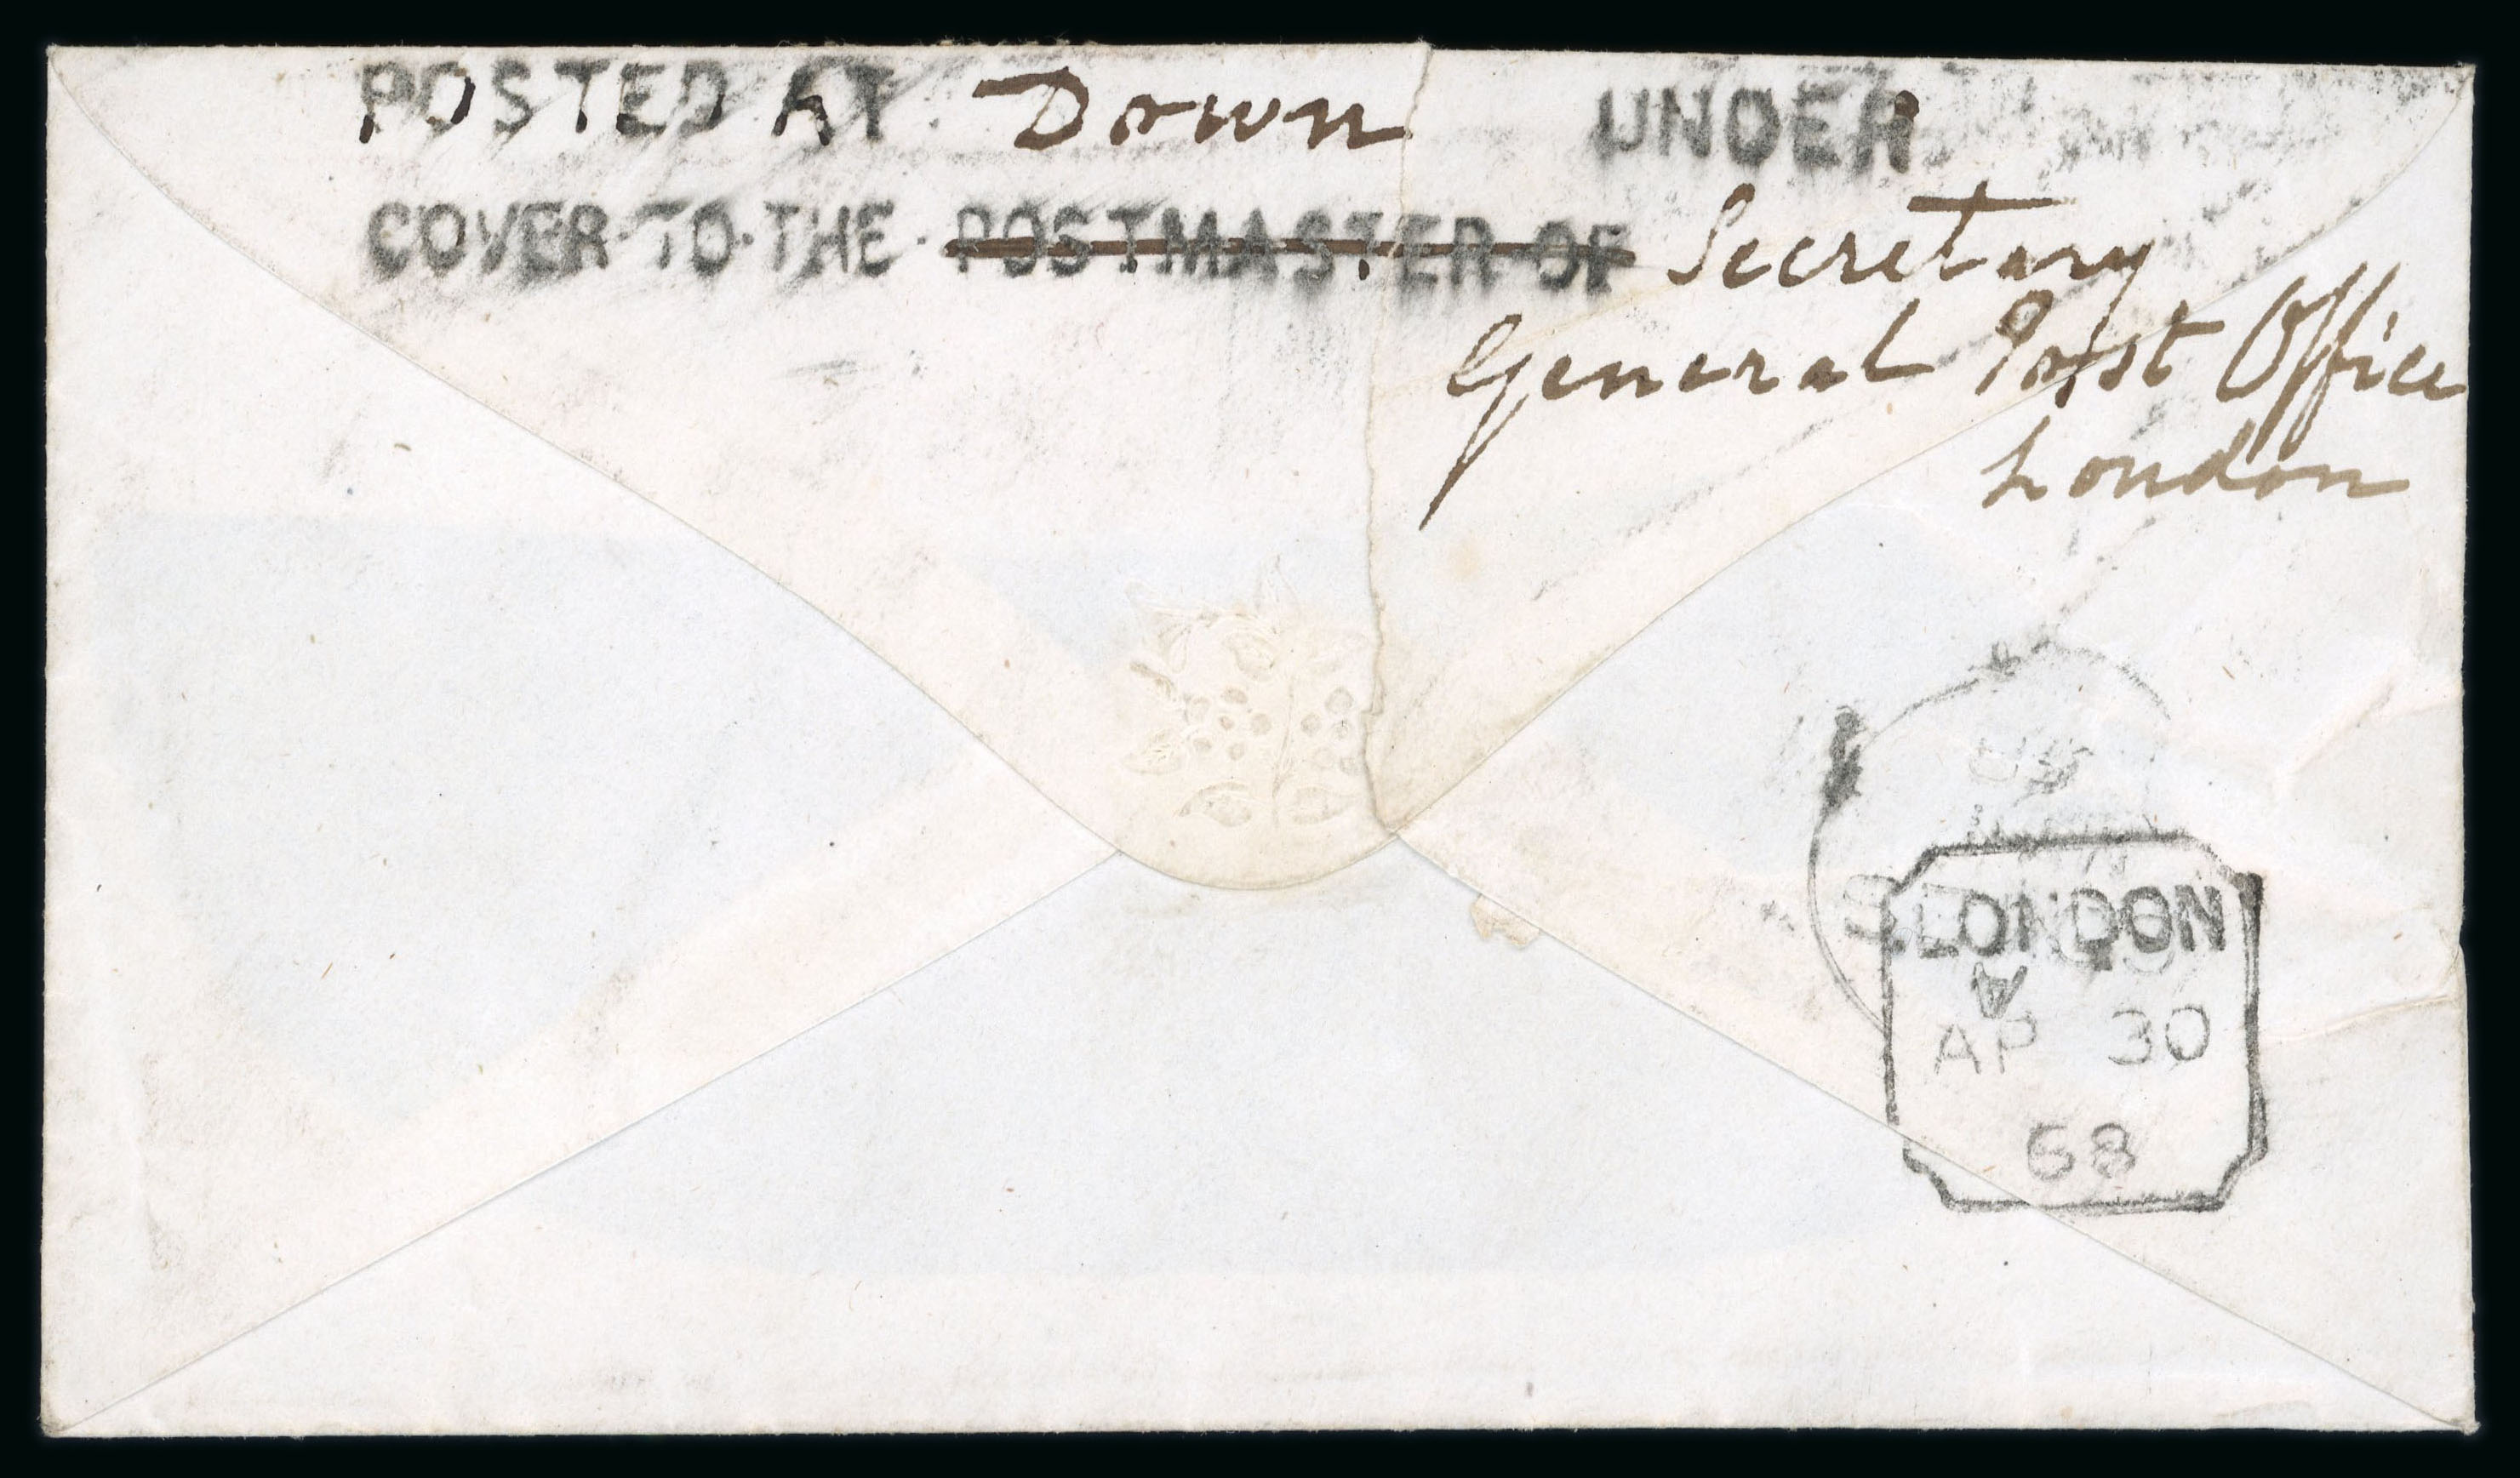 POSTED AT Down UNDER
COVER·TO·THE·POSTMASTER·OF Secretary
General Post Office
London
LONDON
A
AP 30
68